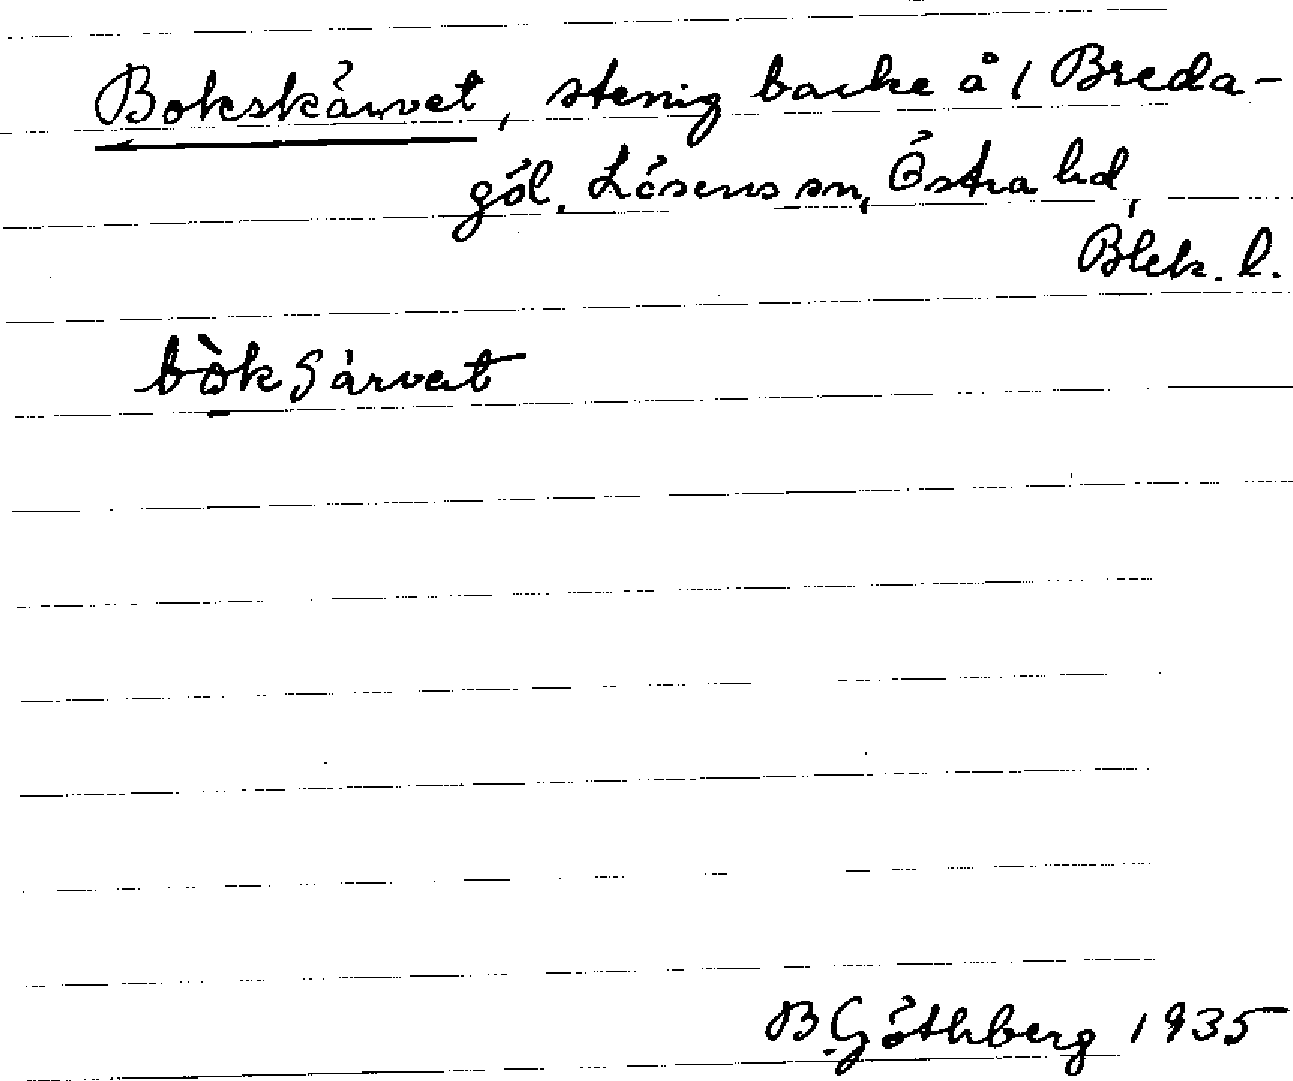 Bokskärvet, stenig backe å 1 Breda-
göl. Lösens sn, Östra hd,
Blek. l.
B. Göthberg 1935